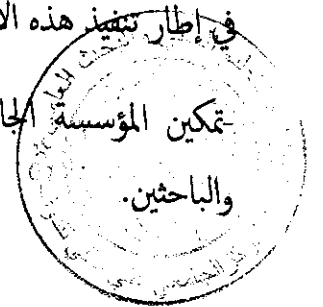 في إطار تنفيذ هذه الا
-تمكين المؤسسة الجا
والباحثين.